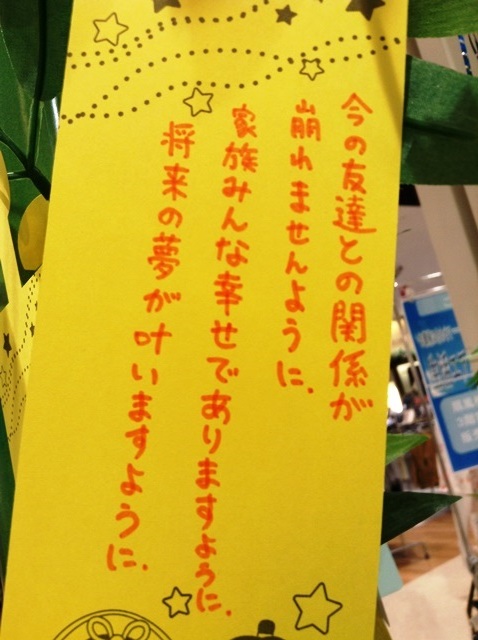 今の友達との関係が
崩れませんように.
家族みんな幸せでありますように.
将来の夢が叶いますように.